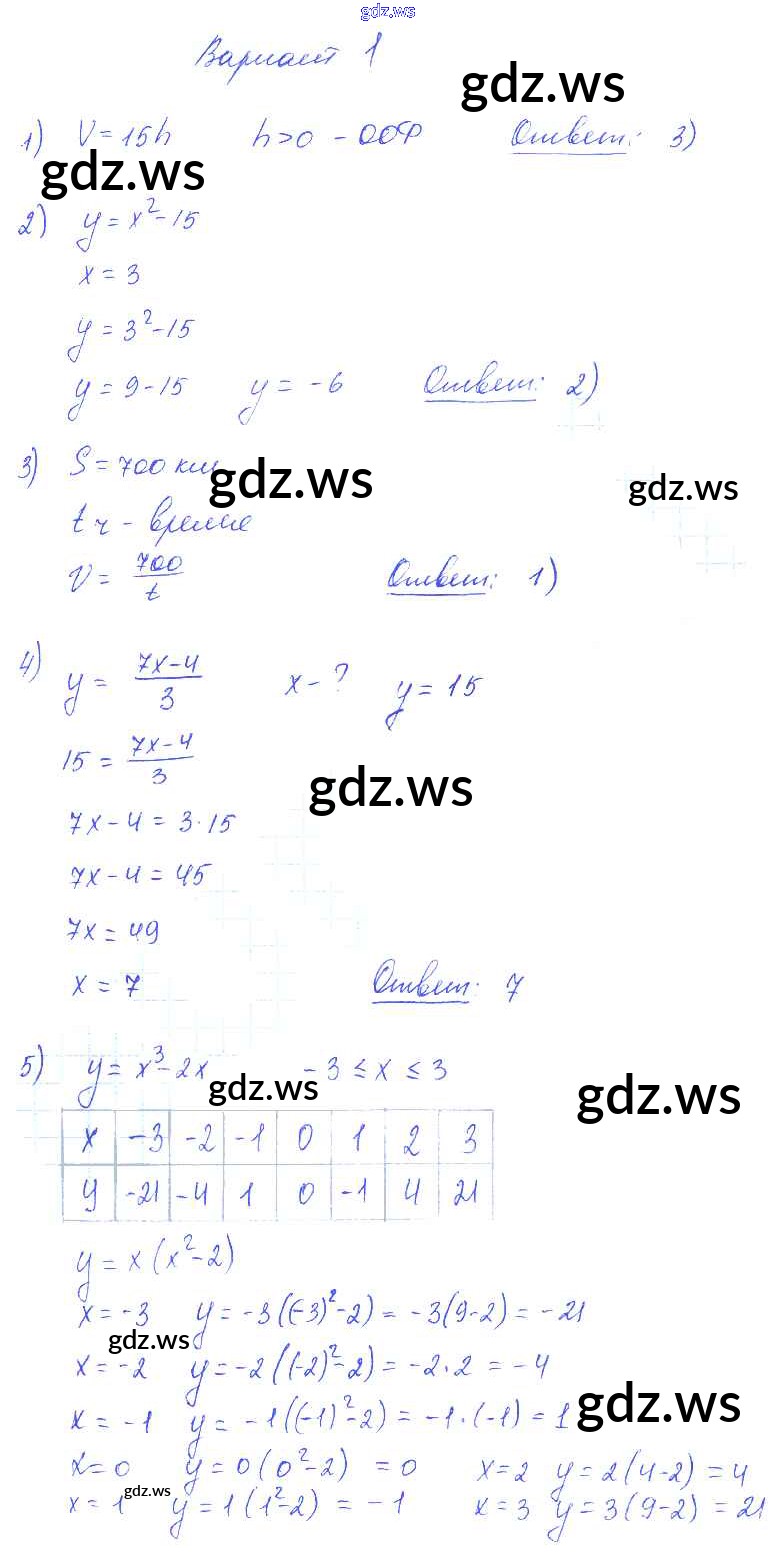 gdz.ws
Вариант 1
gdz.ws
1) V = 15h h>0 - ООФ Ответ: 3)
gdz.ws
2) y = x² - 15
x = 3
y = 3² - 15
y = 9 - 15 y = -6 Ответ: 2)
3) S = 700 км
gdz.ws
gdz.ws
t ч - время
V = 700/t Ответ: 1)
4) y = (7x-4)/3 x - ? y = 15
15 = (7x-4)/3
gdz.ws
7x - 4 = 3·15
7x - 4 = 45
7x = 49
x = 7 Ответ: 7
5) y = x³ - 2x -3 ≤ x ≤ 3
gdz.ws
gdz.ws
x -3 -2 -1 0 1 2 3
y -21 -4 1 0 -1 4 21
y = x(x² - 2)
x = -3 y = -3((-3)² - 2) = -3(9-2) = -21
gdz.ws
x = -2 y = -2((-2)² - 2) = -2·2 = -4
gdz.ws
x = -1 y = -1((-1)² - 2) = -1·(-1) = 1
x = 0 y = 0(0² - 2) = 0 x = 2 y = 2(4-2) = 4
gdz.ws
x = 1 y = 1(1² - 2) = -1 x = 3 y = 3(9-2) = 21